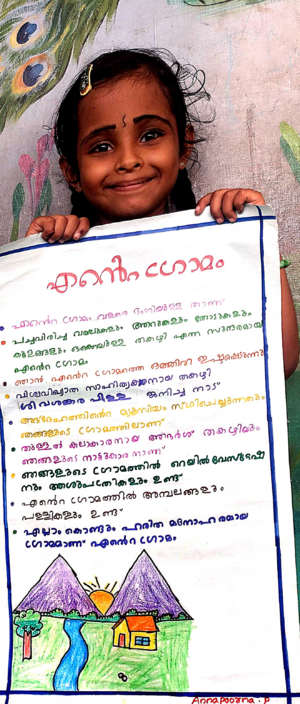 എന്റെ ഗ്രാമം
എന്റെ ഗ്രാമം വളരെ ഭംഗിയുള്ള താണ്
പച്ചവിരിച്ച വയലുകളും അരുകളും തോടുകളും
കുളങ്ങളും ഒക്കെയുള്ള തകഴി എന്ന സുന്ദരമായ
എന്റെ ഗ്രാമം
ഞാൻ എന്റെ ഗ്രാമത്തെ ഒത്തിരി ഇഷ്ടപ്പെടുന്നു
വിശ്വവിഖ്യാത സാഹിത്യകാരനായ തകഴി
ശിവശങ്കര പിള്ള ജനിച്ച നാട്
അദ്ദേഹത്തിന്റെ മ്യൂസിയം സ്ഥിചെയ്യുന്നതും
ഞങ്ങളുടെ ഗ്രാമത്തിലാണ്
തുള്ളൽ കലാകാരനായ തകഴിയും
ഞങ്ങളുടെ നാട്ടുകാര നാണ്
ഞങ്ങളുടെ ഗ്രാമത്തിൽ റെയിൽവേസ്റ്റേഷ
നും അശുപത്രികളും ഉണ്ട്
എന്റെ ഗ്രാമത്തിൽ അമ്പലങ്ങളും
പള്ളികളും ഉണ്ട്
എല്ലാം കൊണ്ടും ഹരിത മനോഹരമായ
ഗ്രാമമാണ് എന്റെ ഗ്രാമം
Annapoorna . P